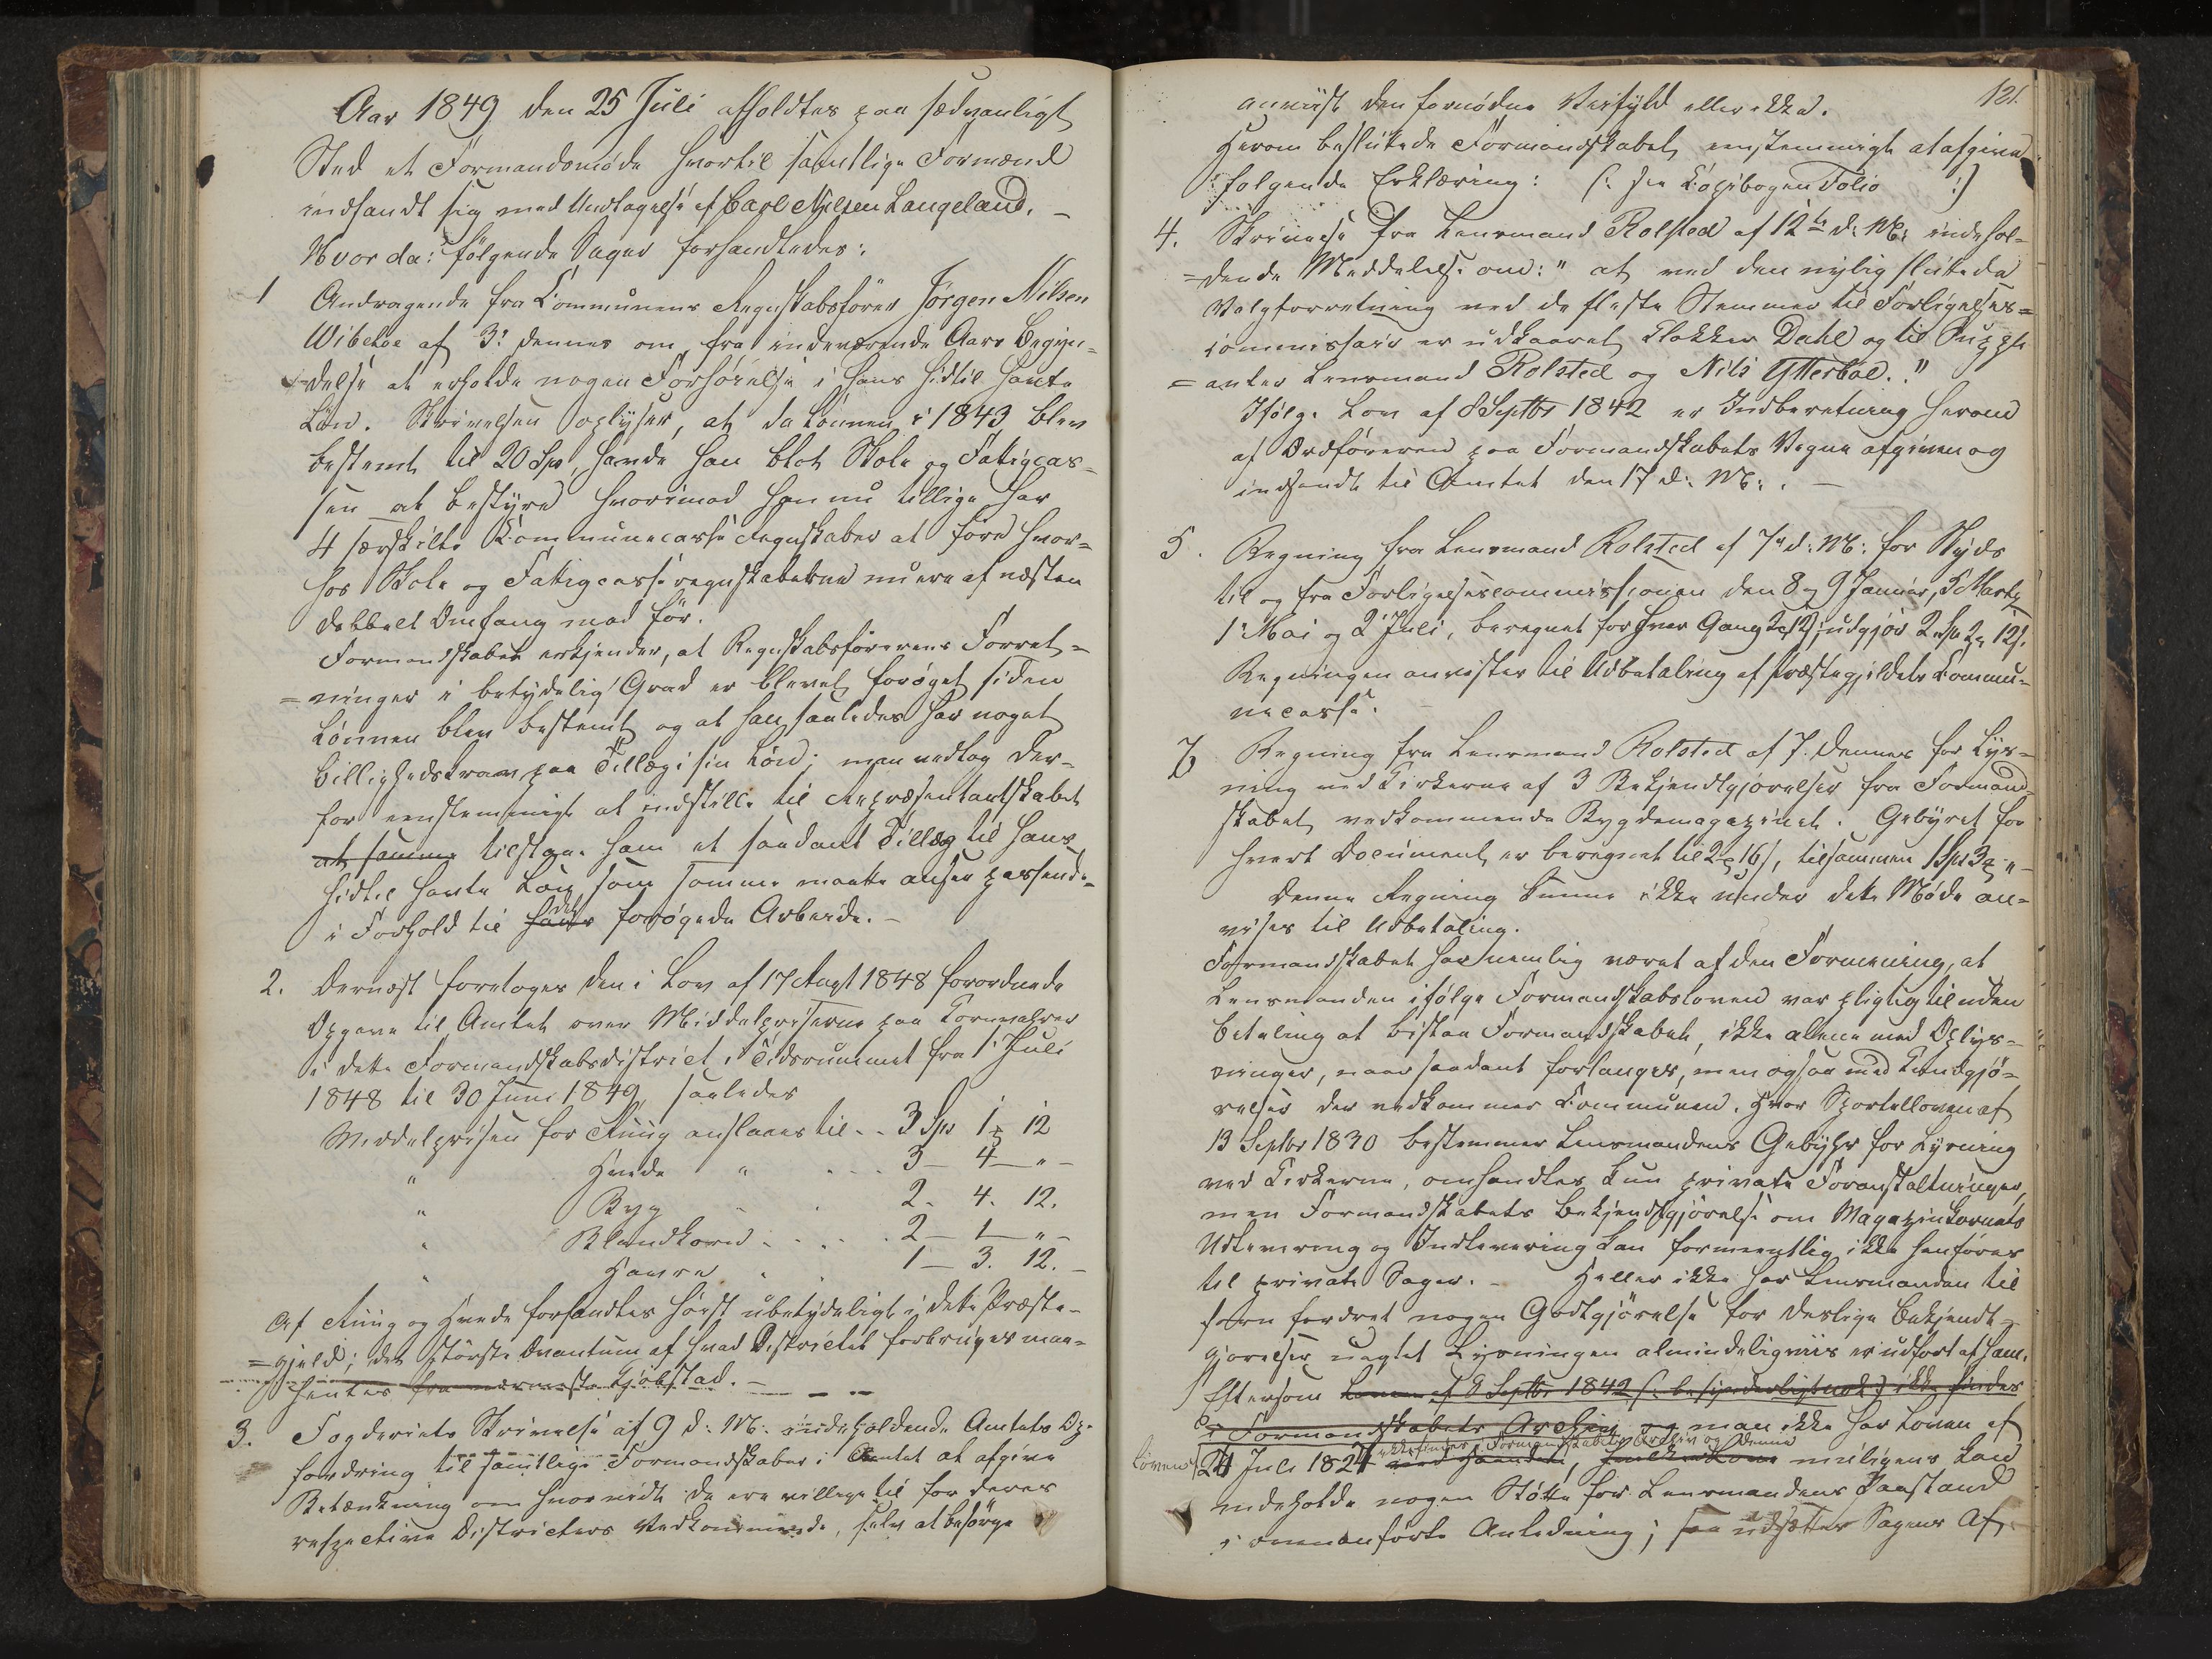 Aar 1849 den 25 Juli afholdtes paa sædvanligt
Sted et Formandsmøde hvortil samtlige Formænd
indfandt sig med Undtagelse af Carl Nilsen Langeland. –
Hvor da: følgende Sager forhandledes:
1 Andragende fra Communens Regnskabsfører Jørgen Nilsen
Wibetoe af 3: dennes om fra indeværende Aars Begyn-
delse at erholde nogen Forhøielse i hans hidtil havte
Løn. Skrivelsen oplyser, at da Lønnen i 1843 blev
bestemt til 20 Spd, havde han blot Skole og Fattigcas-
sen at bestyre hvorimod han nu tillige har
4 særskilte Communecasse Regnskaber at føre hvor-
hos Skole og Fattigcasseregnskaberne nu ere af næsten
dobbelt Omfang mod før.
Formandskabet erkjender, at Regnskabsførerens Forret-
=ninger i betydelig Grad er blevet forøget siden
Lønnen blev bestemt og at han saaledes har noget
billighedskrav paa Tillæg i sin Løn; man vedtog der-
for eenstemmigt at indstille til Repræsentantskabet
at samme tilstaa ham et saadant Tillæg til hans
hidtil havte Løn, som samme maatte ansee passende
i Forhold til hans det forøgede Arbeide. –
2. Dernæst foretoges den i Lov af 17 Augt 1848 forordnede
Opgave til Amtet over Middelpriserne paa Kornvahrer
i dette Formandskabsdistrict i Tidsrummet fra 1 Juli
1848 til 30 Juni 1849, saaledes
Middelprisen for Rug anslaaes til - - 3 Spd 1 12
" Hvede " - - - 3 – 4 – " –
" Byg - - 2 - 4. 12.
" Blandkorn - - - - 2 – 1 – " –
" Havre - - 1 – 3. 12. –
Af Rug og Hvede forhandles høist ubetydeligt i dette Præste-
=gjeld; det største Qvantum af hvad Districtet forbruger maa-
hentes fra nærmeste Kjøbstad. –
3. Fogderiets Skrivelse af 9 d: M: indeholdende Amtets Op-
fordring til samtlige Formandskaber i Amtet at afgive
Betænkning om hvorvidt de ere villige til for deres
respective Districters Vedkommende, selv at besørge
121.
anviist den fornødne Veifyld eller ikke.
Herom besluttede Formandskabet eenstemmigt at afgive
følgende Erklæring: (: see Copibogen Folio :)
4. Skrivelse fra Lensmand Rolsted af 12te d: M: indehol-
=dende Meddelelse om: " at ved den nylig sluttede
Valgforretning ved de fleste Stemmer til Forligelses=
commissair er udkaaret Klokker Dahl og til Supple
=anter Lensmand Rolsted og Nils Ytterboe."
Ifølge Lov af 8 Septbr 1842 er Indberetning herom
af Ordføreren paa Formandskabets Vegne afgiven og
indsendt til Amtet den 17 d: M: . –
5. Regning fra Lensmand Rolsted af 7 d: M: for Skyds
til og fra Forligelsescommissionen den 8 og 9 Januar, 5 Marts
1 Mai og 2 Juli, beregnet for hver Gang 2 12 udgjør 2 Spd 2 12 s.
Regningen anvistes til Udbetaling af Præstegjeldets Commu-
necasse.
Regning fra Lensmand Rolsted af 7. dennes for Lys-
ning ved Kirkerne af 3 Bekjendtgjørelser fra Formand-
skabet vedkommende Bygdemagazinet. Gebyret for
hvert Document er beregnet til 2 16 s, tilsammen 1 Spd 3 "
Denne Regning kunne ikke under dette Møde an-
vises til Udbetaling.
Formandskabet har nemlig været af den Formening, at
Lensmanden ifølge Formandskabsloven var pligtig til uden
betaling at bistaa Formandskabet, ikke alene med Oplys-
ninger, naar saadant forlanges, men ogsaa med Kundgjø-
relser der vedkommer Communen. Hvor Sportelloven af
13 Septbr 1830 bestemmer Lensmandens Gebyhr for Lysning
ved Kirkerne, omhandles kun private Foranstaltninger,
men Formandskabets bekjendtgjørelse om Magazinkornets
Udlevering og Indlevering kan formeentlig ikke henføres
til private Sager. – Heller ikke har Lensmanden til
forn fordret nogen Godtgjørelse for deslige bekjendt-
gjørelser uagtet Lysningen almindeligviis er udført af ham.
Eftersom Loven af 8 Septbr 1842 (: besynderligt nok :) ikke findes
i Formandskabets Archiv og man ikke har Loven af
ikke findes i Formandskabets Archiv og denne
Loven 24 Juli 1827 ved Haanden, muligens kan
indeholde nogen Støtte for Lensmandens Paastand
i ovenanførte Anledning; saa udsættes Sagens Af-